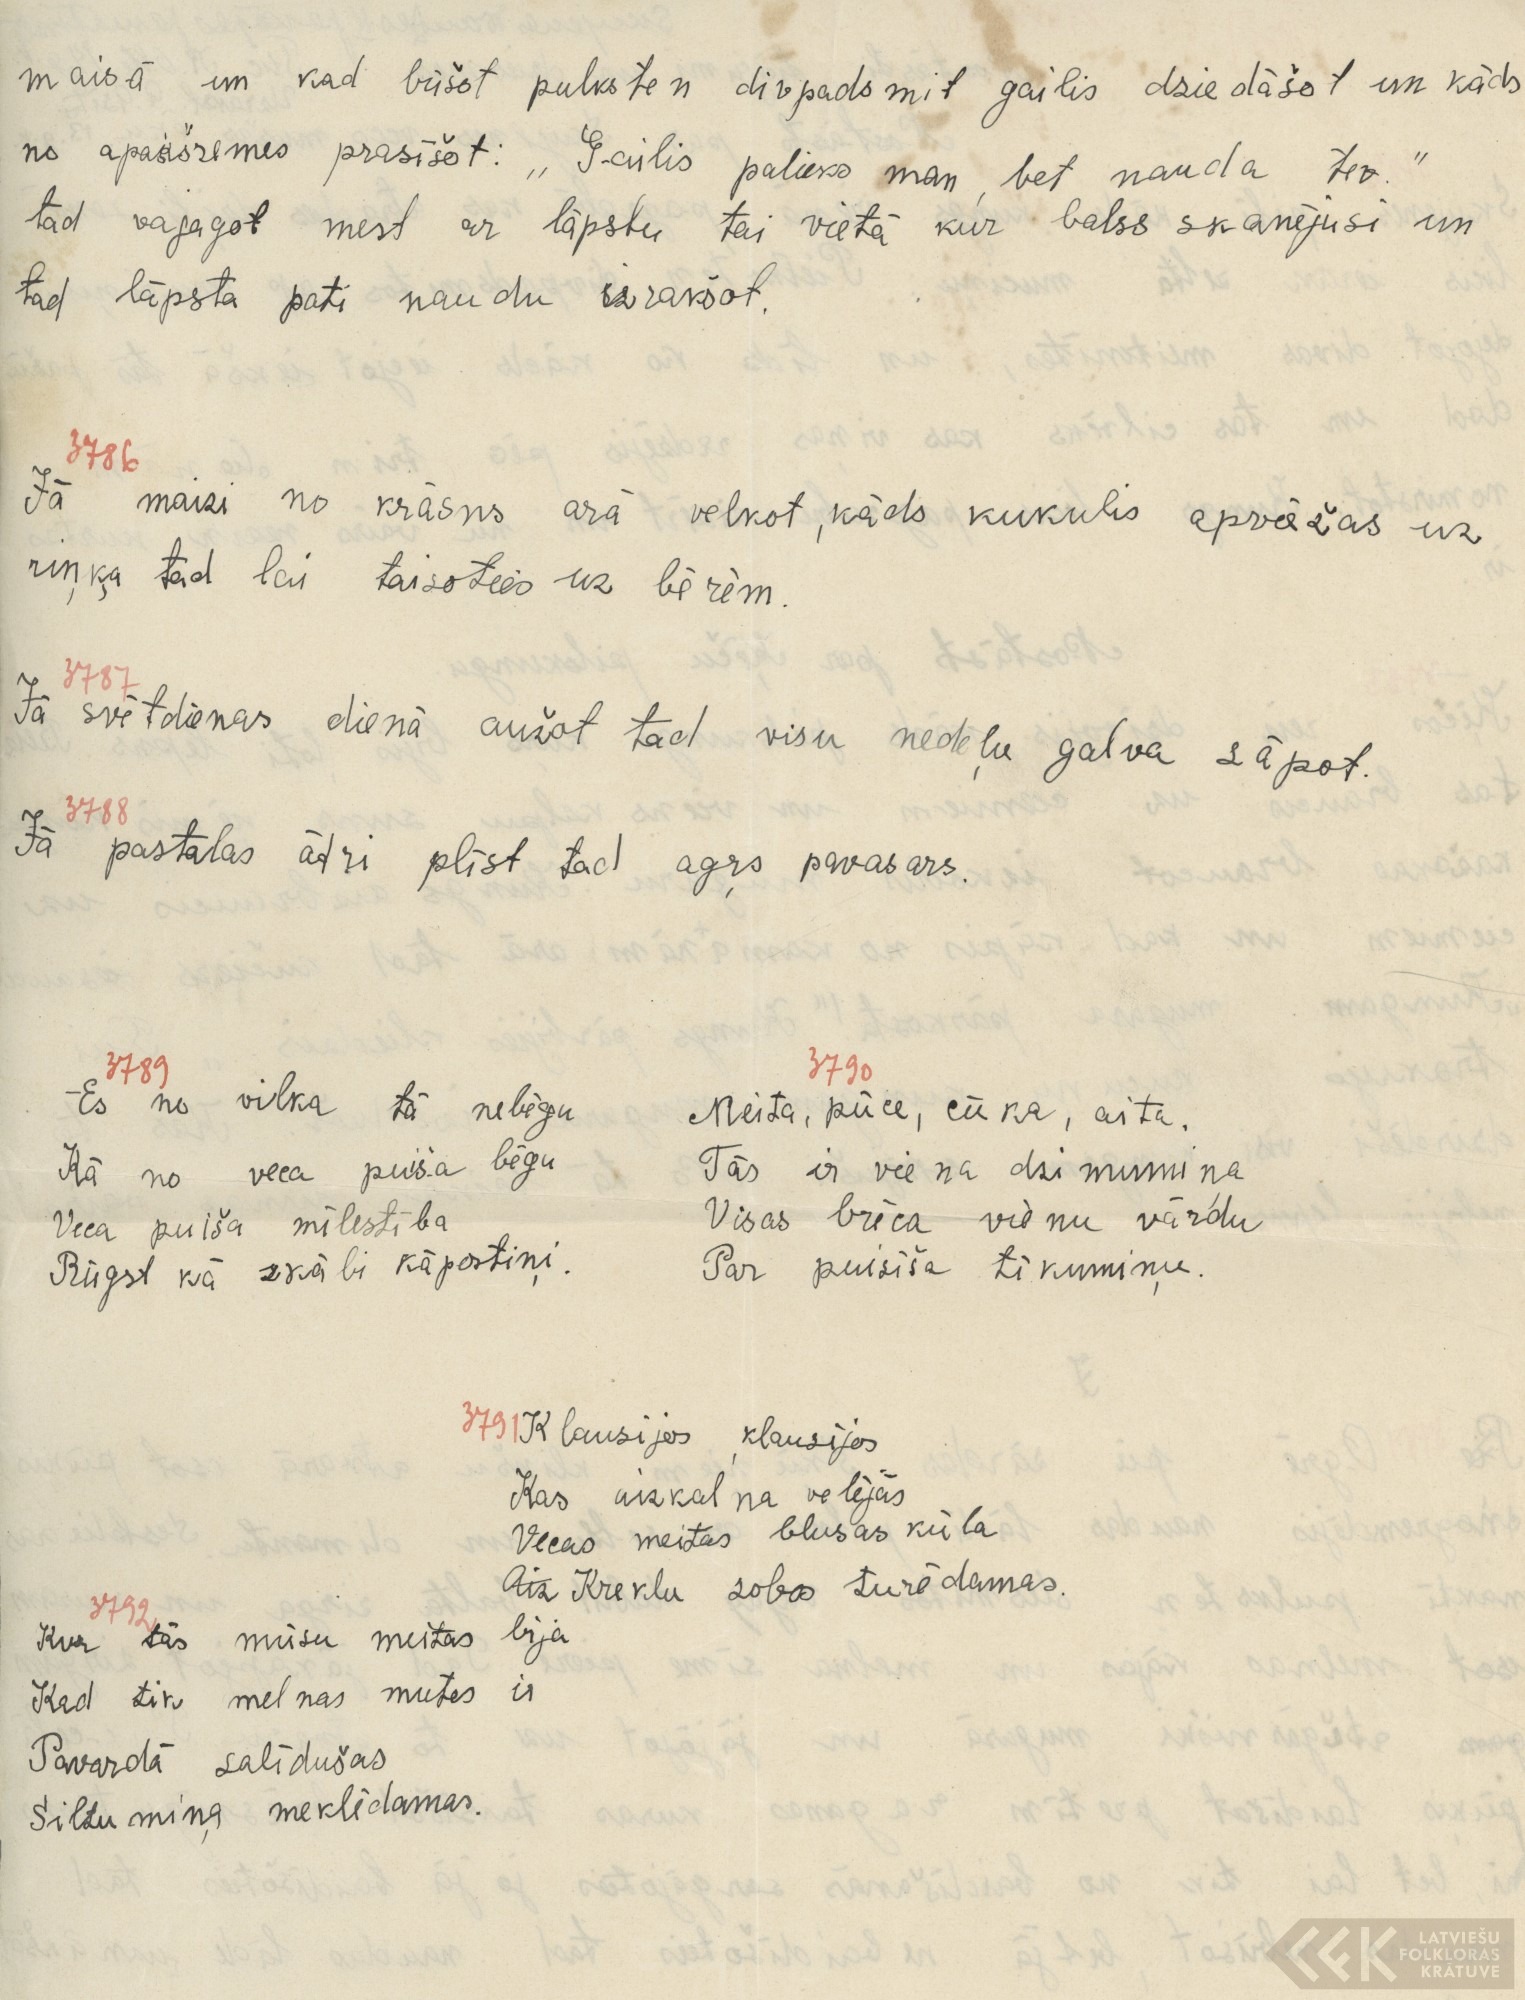 maisā un kad būšot pulksten divpadsmit gailis dziedāšot un kāds
no apaśšzemes prasīšot: „Gailis palieks man, bet nauda tev.”
tad vajagot mest ar lāpstu tai vietā kur balss skanējusi un
tad lāpsta pati naudu izrakšot.
3786
Jā maizi no krāsns arā velkot, kāds kukulis apviežas uz
riņķa tad lai taisoties uz bērēm.
3787
Jā svētdienas dienā aužot tad visu nedeļu galva sāpot.
3788
Jā pastalas ātri plīst tad agŗs pavasars.
3789
Es no vilka tā nebēgu
Kā no veca puiša bēgu
Veca puiša mīlestība
Rūgst kā skābi kāpostiņi.
3790
Meita, pūce, cūka, aita,
Tās ir viena dzimumiņa
Visas brēca vienu vārdu
Par puisīša tikumiņu.
3791
Klausijos, klausijos
Kas aizkalna velējās
Vecas meitas blusas kūla
Aiz Kreklu zobos turēdamas.
3792
Kur tās mūsu meitas bija
Kad tik melnas mutes ir
Pavardā salīdušas
Siltumiņa meklēdamas.
LATVIEŠU
FOLKLORAS
KRĀTUVE